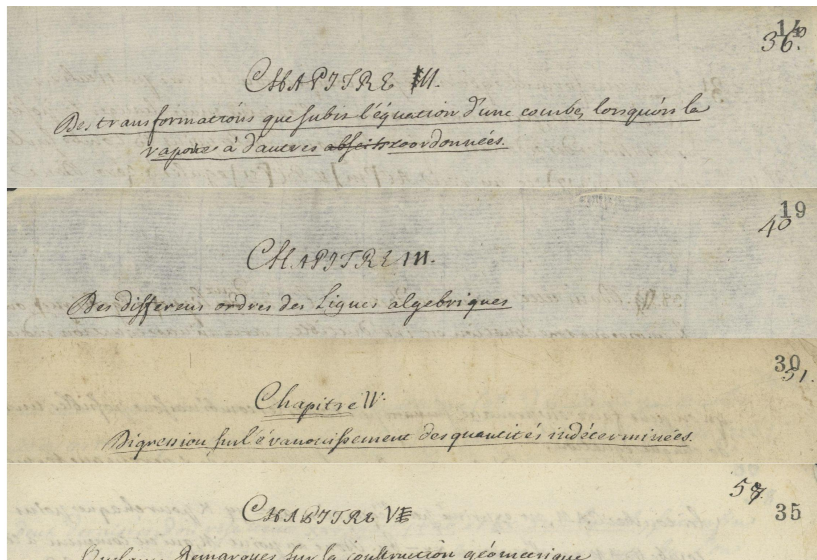 14
36.
CHAPITRE II.
Des transformations que subit l'équation d'une courbe, lorsqu'on la
raporte à d'autres coordonnées.
19
40
CHAPITRE III.
Des differens ordres des Lignes algebriques
30
51.
Chapitre IV.
Digression sur l'évanouissement des quantités indéterminées.
57
35
CHAPITRE V
Quelques Remarques sur la construction géometrique